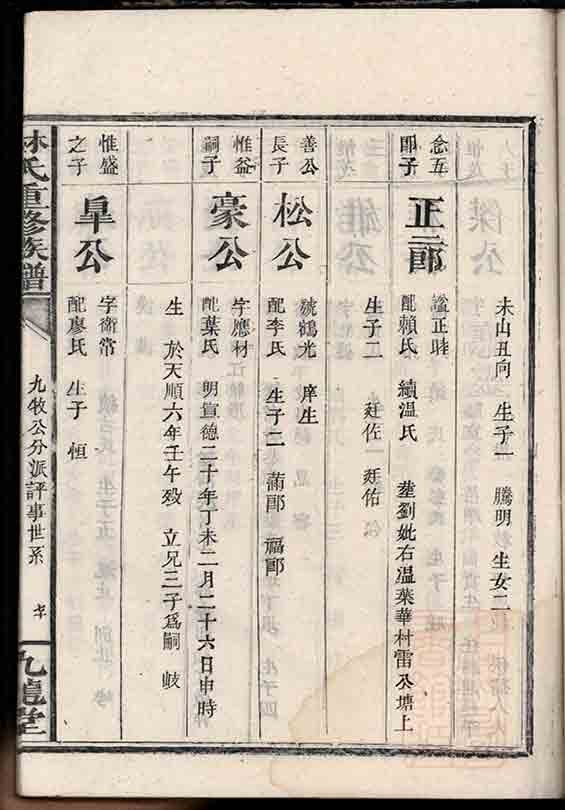 未山丑向 生子一 騰明 生女二
念五
郎子
正三郎
諡正睦
配賴氏 續温氏 塟劉妣右温葉華村雷公塘上
生子二 廷佐 廷佑
善公
長子
松公
號鶴光 庠生
配李氏 生子二 蒲郎 福郎
惟益
嗣子
豪公
字應材
配葉氏 明宣德二十年丁未二月二十六日申時
生 於天順六年壬午致 立兄三子爲嗣 岐
惟盛
之子
皐公
字衛常
配廖氏 生子 恒
林氏重修族譜
九牧公分派評事世系
九龍堂